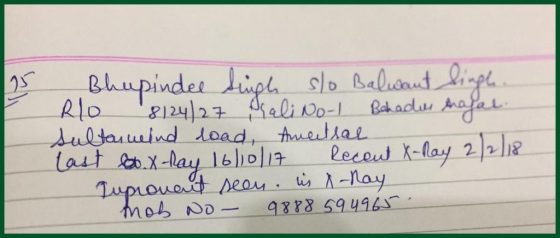 75 Bhupinder Singh S/o Balwant Singh.
R/O 8124/27, Gali No-1 Bahadur Nagar.
Sultanwind road, Amritsar
Last X-Ray 16/10/17 Recent X-Ray 2/2/18
Improvent seen. in X-Ray
Mob No- 9888594965.